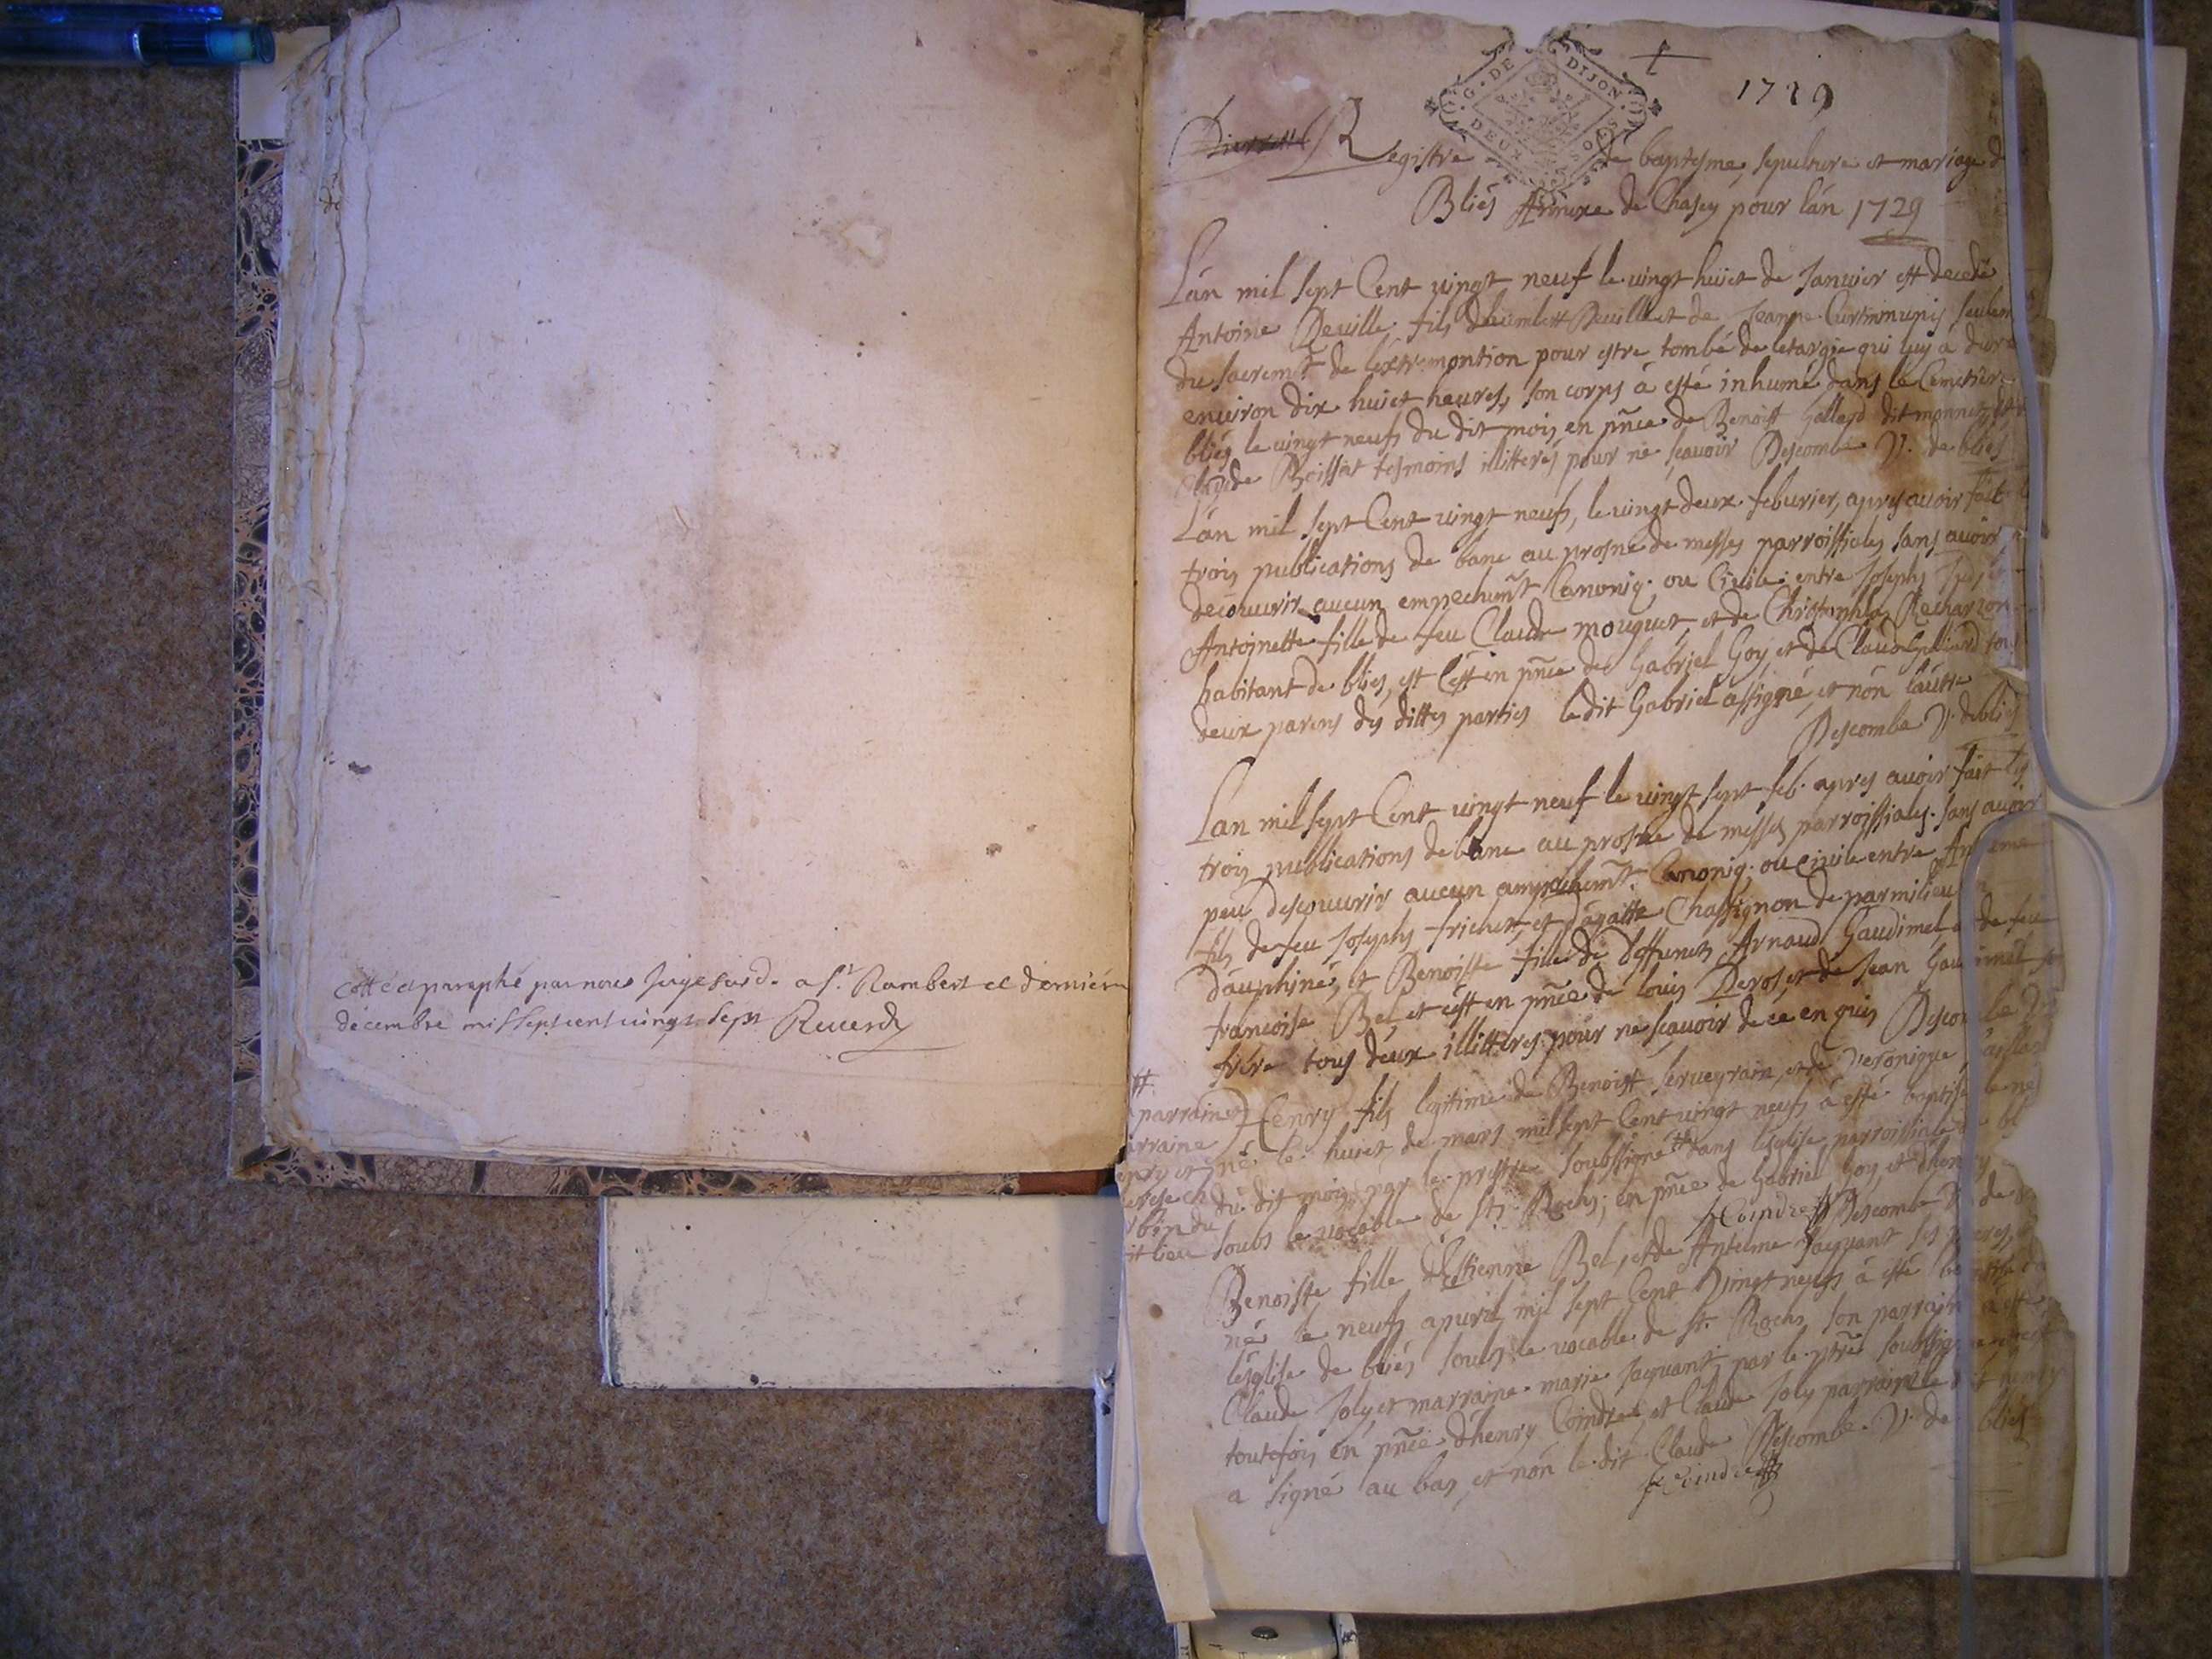 cotté et paraphé par nous juge susd. a St. Rambert ce dernier
décembre mil sept cent vingt sept Reverdy
1729
G. DE DIJON
DEUX SOLS
Registre de baptesme, sepulture et mariage d
Bliés Annexe de Chasey pour lán 1729
Lán mil sept Cent vingt neuf le vingt huict de Janvier est decedé
Antoine Deville, fils dhumbert Deville et de Jeanne
du sacremt. de lextremontion pour estre tombé de letargie qui luy a duré
environ dix huict heures, son corps à esté inhumé dans le Cemetiere
bliés le vingt neufs du dit mois en pñce de Benoist Galland dit monnet
Claude Boissat tesmoins illitterés pour ne sçavoir Descombe V. de bliés
Lán mil sept Cent vingt neufs, le vingt deux feburier, apres avoir fait
trois publications de banc au prosne de messes parroissiales sans avoir
decouvrir aucun empechemt. Canoniq. ou Civile entre Joseph
Antoinette fille de feu Claude mouquet et de Christophla
habitant de bliés, est c'est en pñce de Gabriel Goy et de Claude
deux parens des dittes parties le dit Gabriel assigné, et nón láutre
Descombe V. de bliés
Lan mil sept Cent vingt neuf le vingt sept feb. apres avoir fait les
trois publications de banc au prosne de messes parroissiales. sans avoir
peu descouvrir aucun empechemt. Canoniq. ou civile entre
fils de feu Joseph frichet, et d'agatte Chassignon de parmilieu
dáuphiné, et Benoiste fille de deffuncts Arnaud Gaudimel et de feu
francoise Bel, et c'est en pñce de louis Deros, et de Jean Gaudimel
frere tous deux illitteres pour ne scavoir de ce enquis Descombe
parrain
Henry fils legitime de Benoist Serveyrain, et de Veronique
né le huict de mars mil sept Cent vingt neufs à esté baptisé
du dit mois par le prestre soubssigné dans l'eglise parroissiale
soubs le vocable de St. Rochs, en pñce de Gabriel Goy, et dhenry
it lieu
H Coindre Descombe V. de
Benoiste fille d'Estienne Bel, et de Antelme Jacquant ses
né le neufs apvril mil sept Cent Vingt neufs à esté
léglise de bliés soubs le vocable de St. Rochs, son parrain à esté
Claude Joly et marraine marie Jacquant, par le pñtre soubssigné
toutefois en pñce d'henry Coindre, et Claude Joly parrain le dit henry
a signé au bas, et nón le dit Claude Descombe. V. de bliés
H Coindre